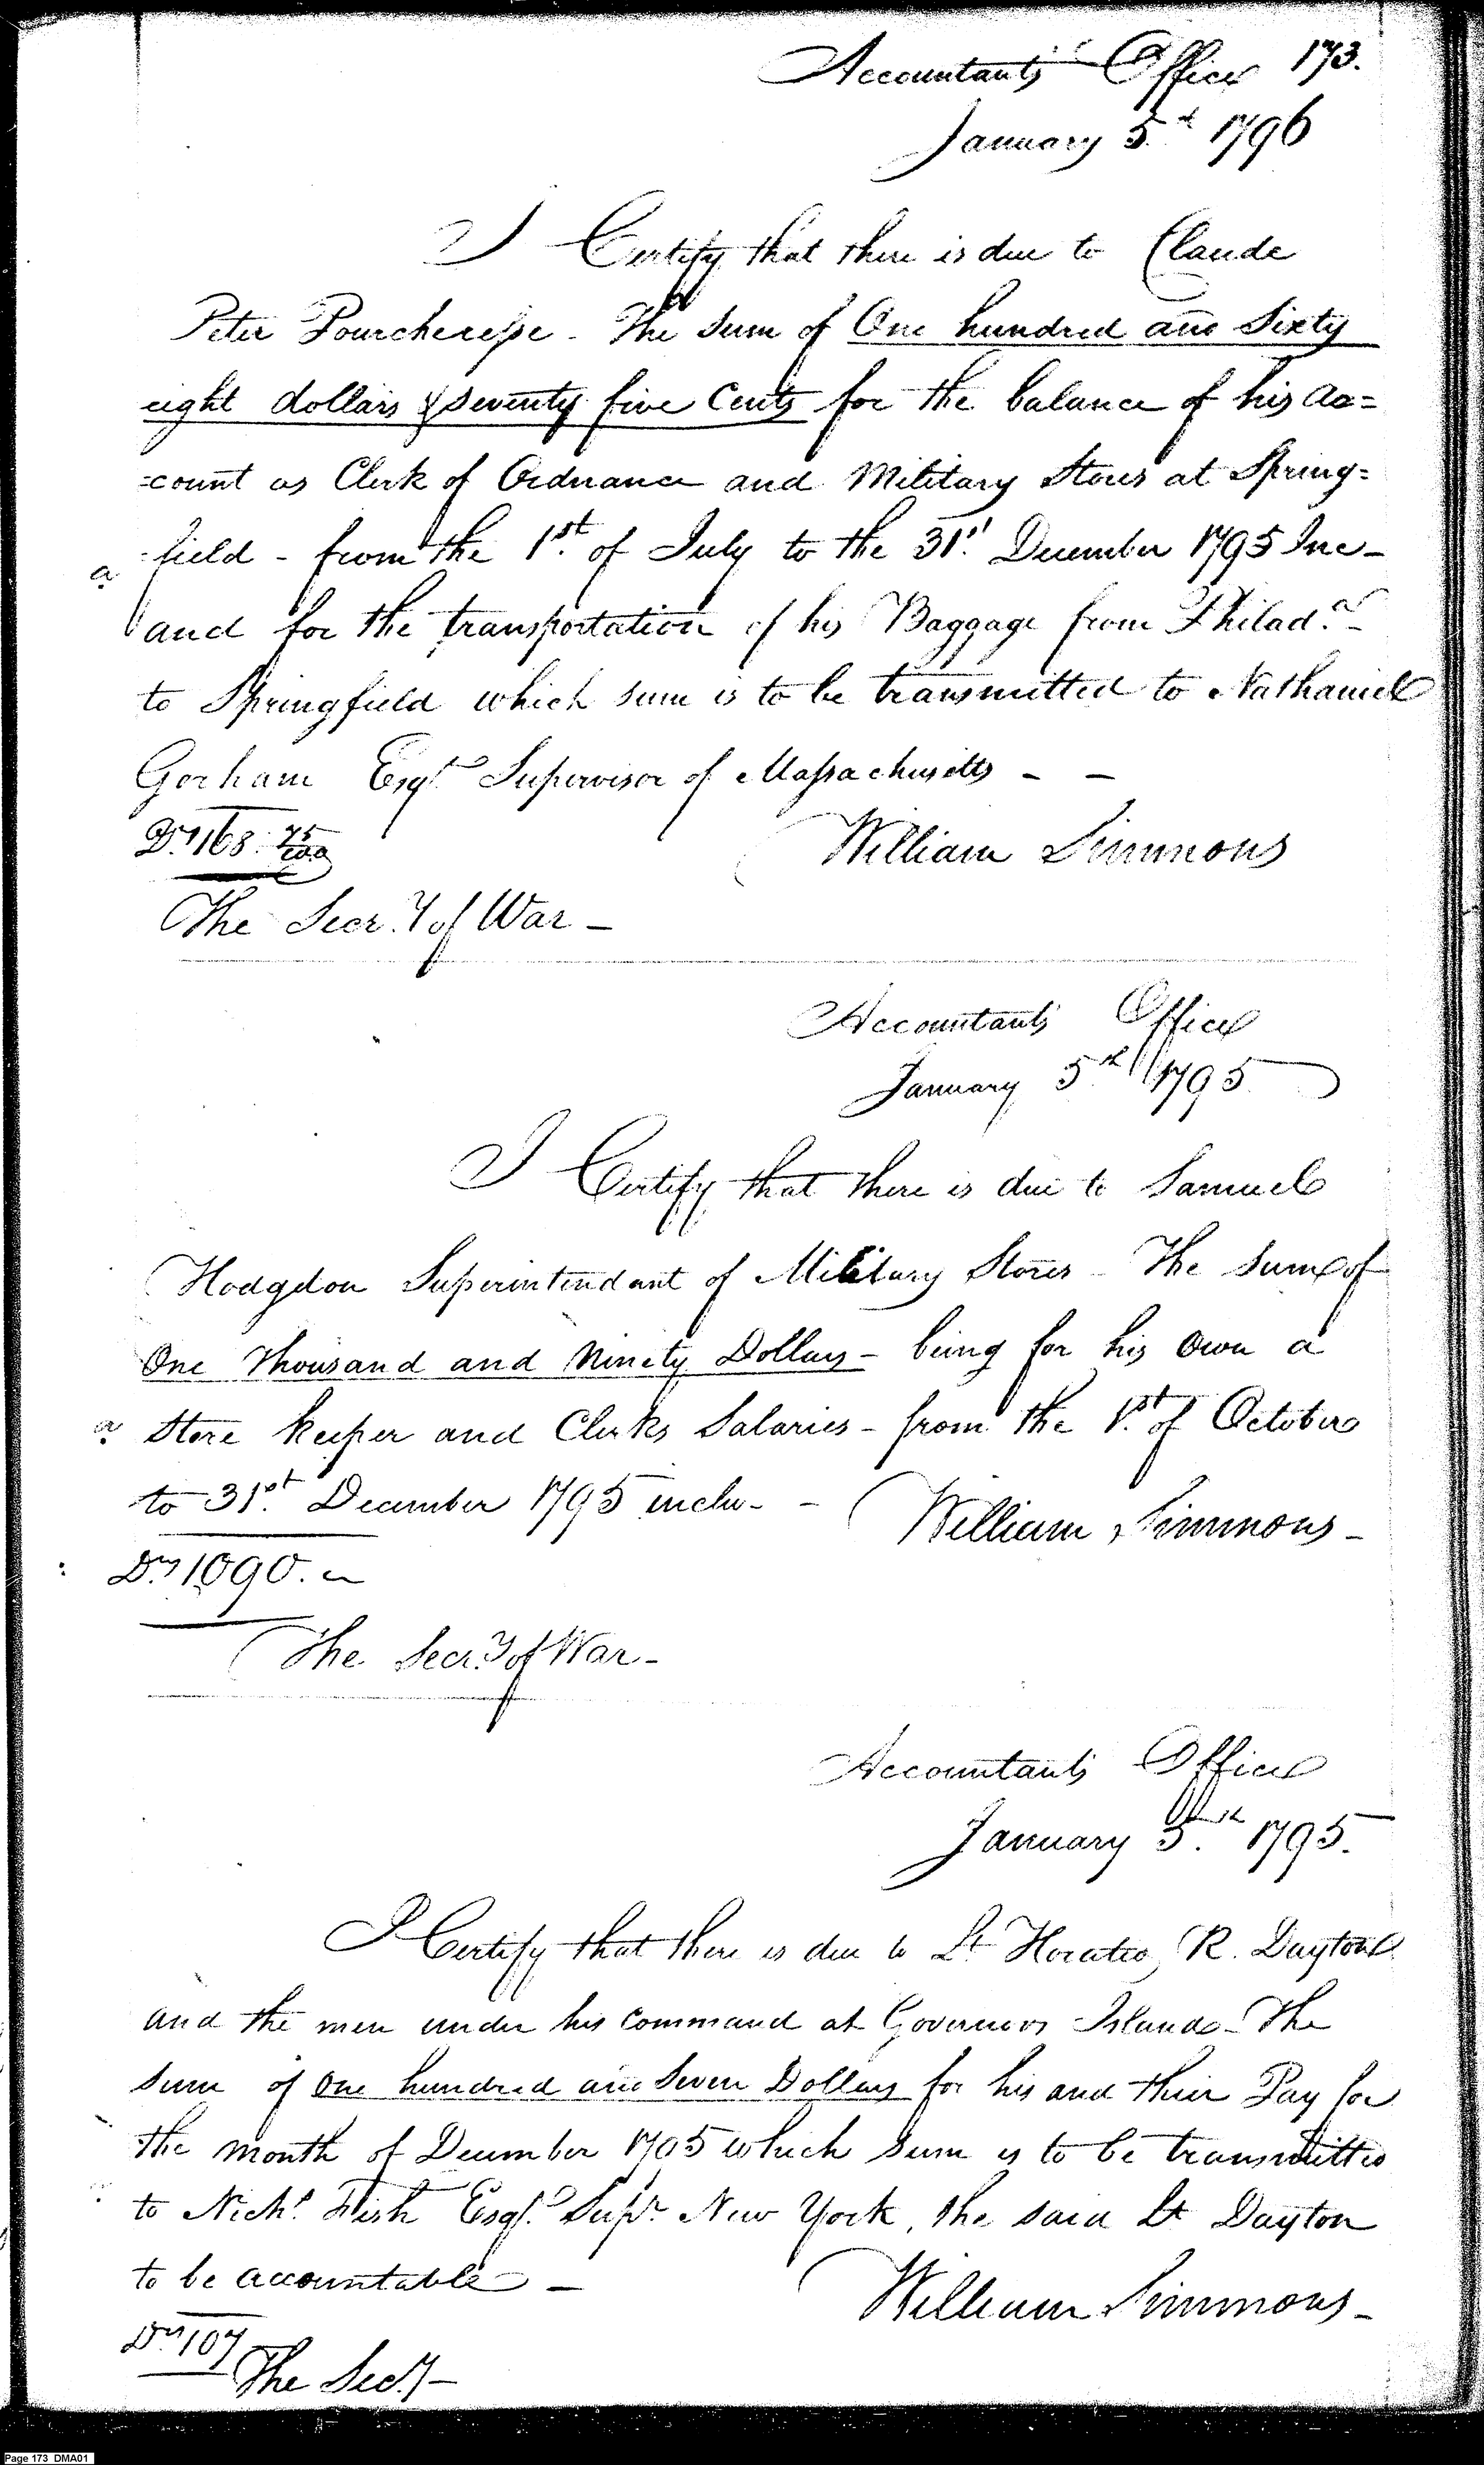 Accountants Office 173.
January 5th 1796
I Certify that there is due to Claude
Peter Pourcheresse - The sum of One hundred and Sixty
eight dollars & seventy five Cents for the balance of his ac=
=count as Clerk of Ordnance and Military Stores at Spring=
=field - from the 1st of July to the 31st December 1795 Inc-
a
and for the transportation of his Baggage from Philada -
to Springfield which sum is to be transmitted to Nathaniel
Gorham Esqr Supervisor of Massachusetts - -
Drs 168. 75/100
William Simmons
The Secry of War -
Accountants Office
January 5th 1795
I Certify that there is due to Samuel
Hodgdon Superintendant of Military Stores - The sum of
One Thousand and Ninety Dollars - being for his own a
a Store keeper and Clerks Salaries - from the 1st of October
to 31st December 1795 inclu- -
William Simmons -
Drs 1090.
The Secry of War -
Accountants Office
January 5th 1795.
I Certify that there is due to Lt Horatio R. Dayton
and the men under his command at Governors Island - The
sum of One hundred and Seven Dollars for his and their Pay for
the month of December 1795 which sum is to be transmitted
to Nichs Fish Esqr Supr New York, the said Lt Dayton
to be accountable -
William Simmons -
Drs 107
The Secy -
Page 173 DMA01